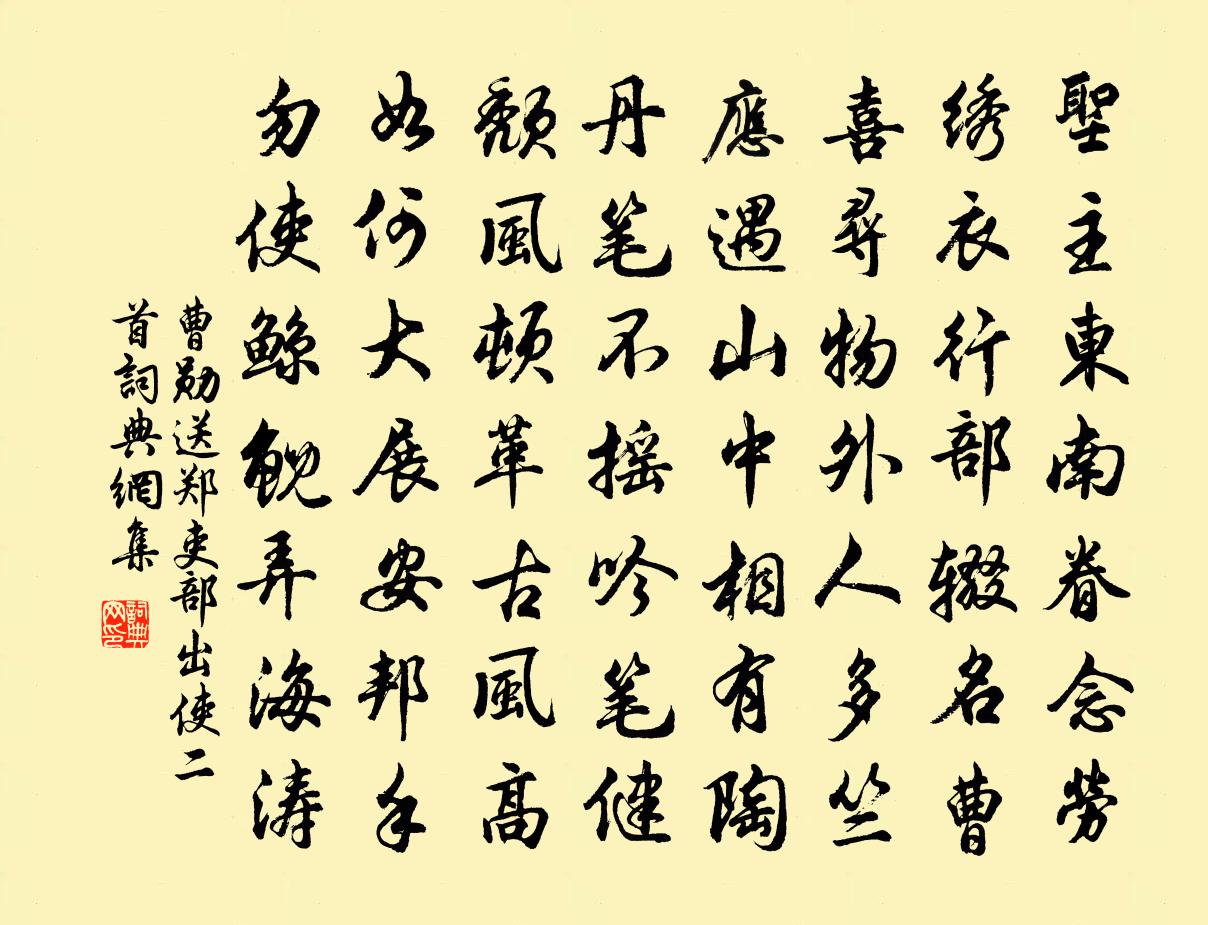 聖主東南眷念勞
绣衣行部辍名曹
喜尋物外人多竺
應遇山中相有陶
丹笔不摇吟笔健
颓風顿革古風高
如何大展安邦手
勿使鲸鲵弄海涛
曹勋送郑吏部出使二
首詞典網集
詞典
网印